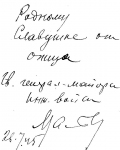 Родному
Славушке от
отца
Гв. генерал-майора
инж. войск
26.7.45